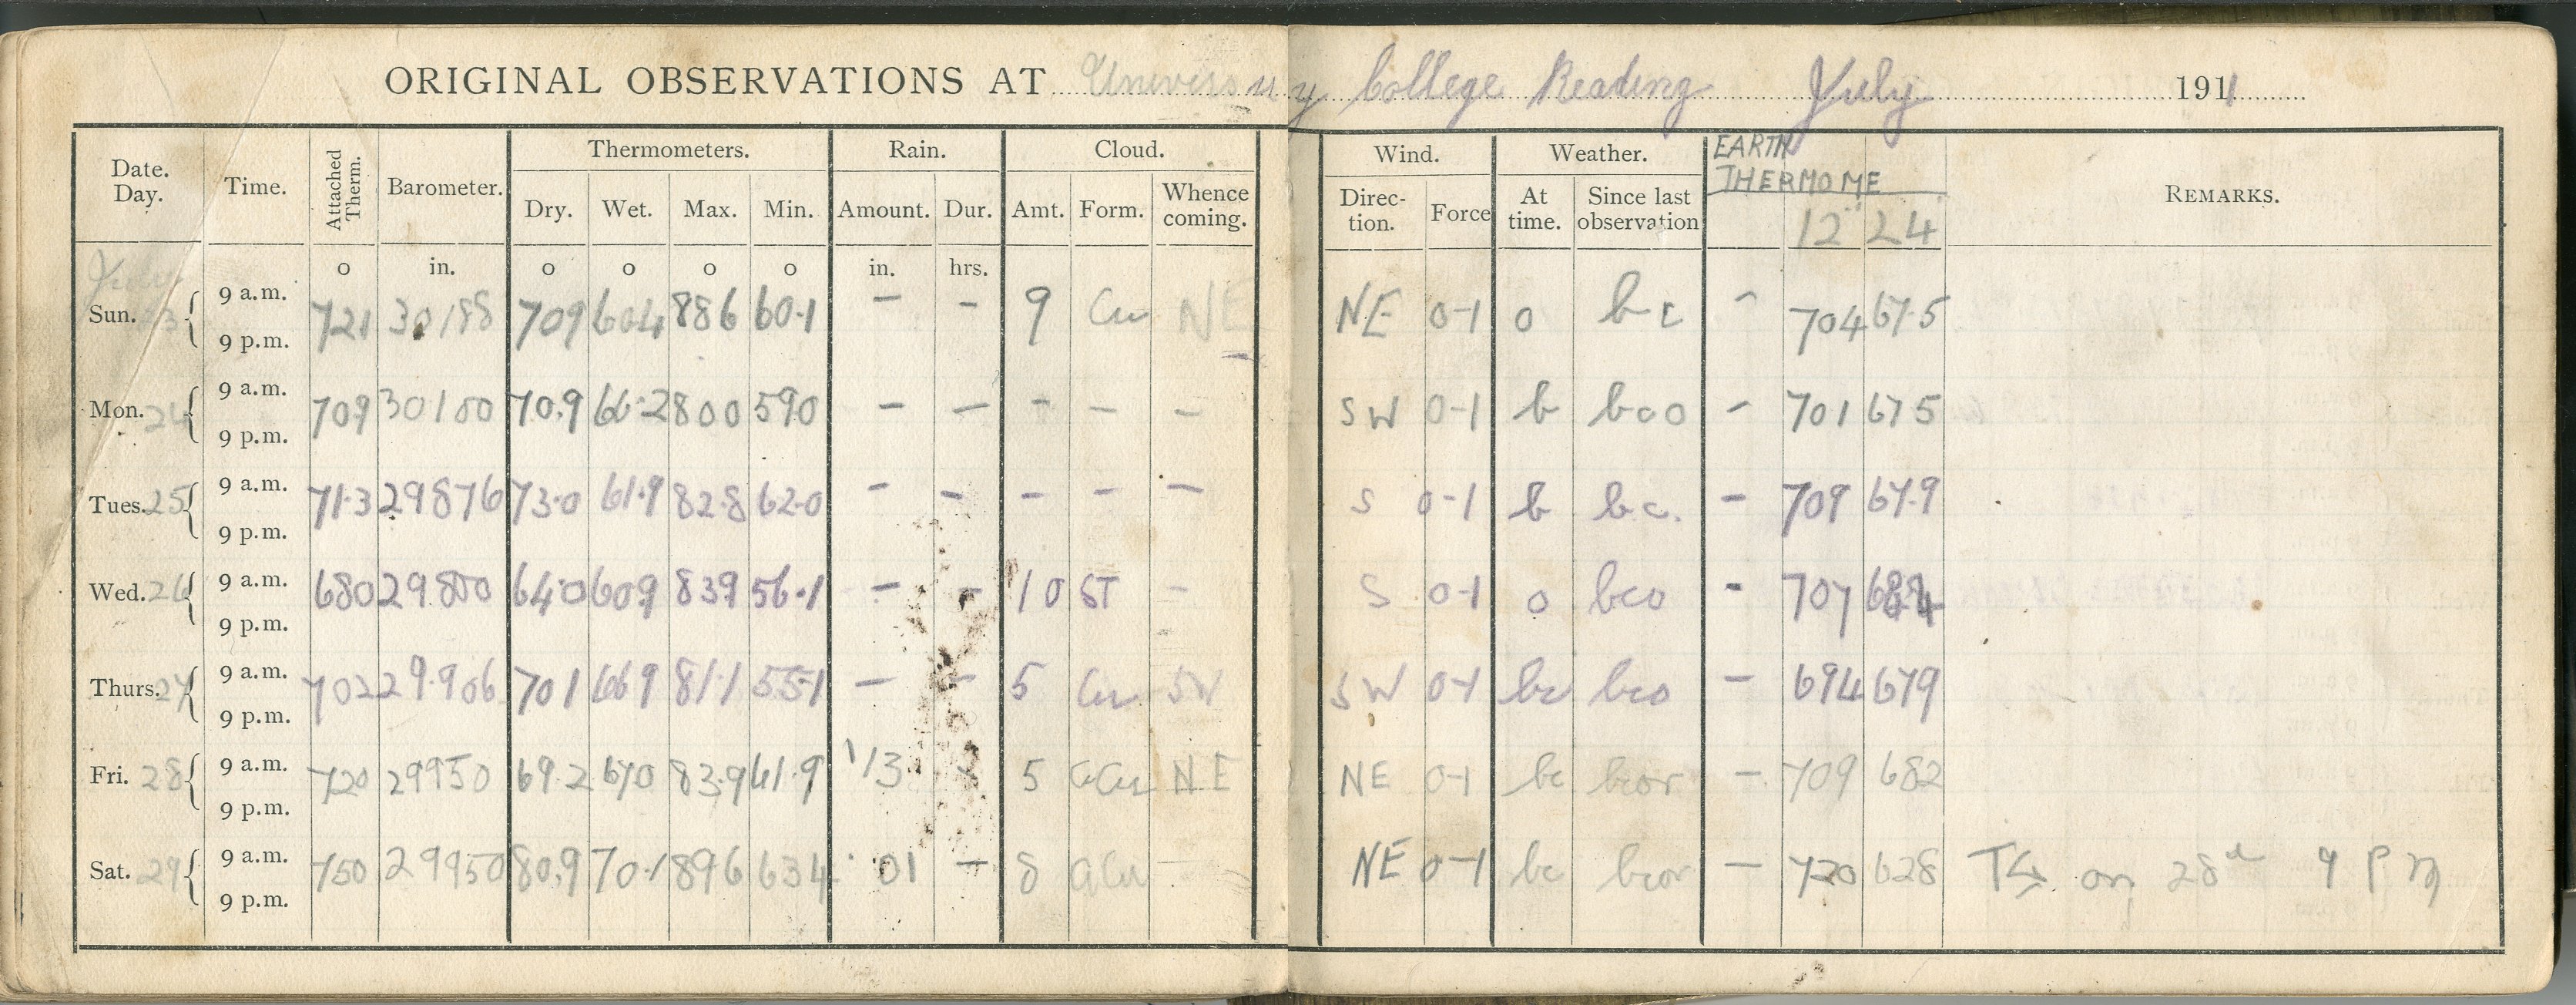 ORIGINAL OBSERVATIONS AT University College Reading July 1911
Date. Day. Time. Attached Therm. Barometer. Thermometers. Rain. Cloud. Wind. Weather. EARTH THERMOME REMARKS.
Dry. Wet. Max. Min. Amount. Dur. Amt. Form. Whence coming. Direc- tion. Force At time. Since last observation 12" 24"
July o in. o o o o in. hrs.
Sun. 23 { 9 a.m. 9 p.m. 721 30188 709 60.4 886 60.1 - - 9 Cu NE NE 0-1 o bc - 704 67.5
Mon. 24 { 9 a.m. 9 p.m. 709 30100 70.9 66.2 800 590 - - - - - SW 0-1 b bco - 701 675
Tues. 25 { 9 a.m. 9 p.m. 71.3 29876 73.0 61.9 82.8 62.0 - - - - - S 0-1 b bc. - 709 67.9
Wed. 26 { 9 a.m. 9 p.m. 680 29800 64.0 609 839 56.1 - - 10 ST - S 0-1 o bco - 707
Thurs. 27 { 9 a.m. 9 p.m. 702 29.906 701 669 81.1 55.1 - - 5 Cu SW SW 0-1 bc bco - 694 679
Fri. 28 { 9 a.m. 9 p.m. 720 29950 69.2 670 83.9 61.9 13 - 5 aCu NE NE 0-1 bc bcor - 709 682
Sat. 29 { 9 a.m. 9 p.m. 750 29950 80.9 70.1 896 634 .01 - 8 aCu - NE 0-1 bc bcor - 720 628 on 28th 9 P M